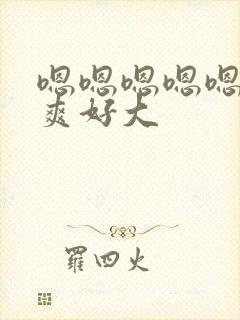 嗯嗯嗯嗯嗯
爽好大
罗四火